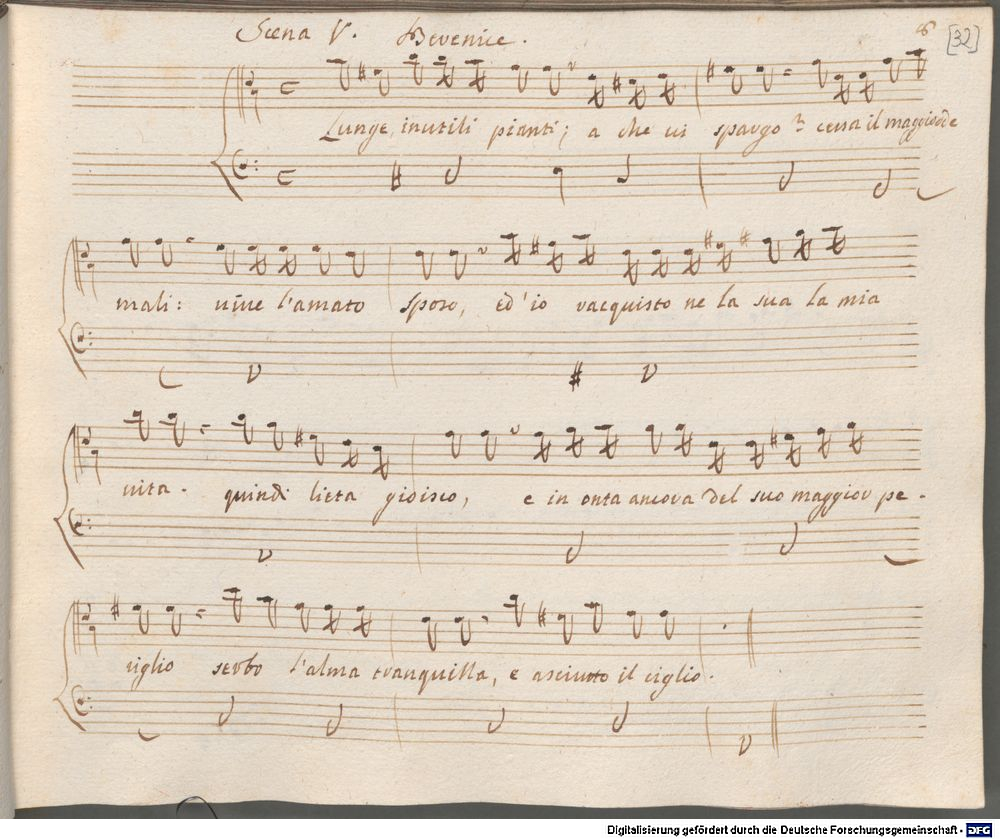 Scena V. Berenice. 8 [32]
Lunge, inutili pianti; a che vi spargo? cessa il maggior de
mali: vive l'amato sposo, ed'io racquisto ne la sua la mia
vita. quindi lieta gioisco, e in onta ancora del suo maggior pe-
riglio serbo l'alma tranquilla, e asciutto il ciglio.
Digitalisierung gefördert durch die Deutsche Forschungsgemeinschaft - DFG